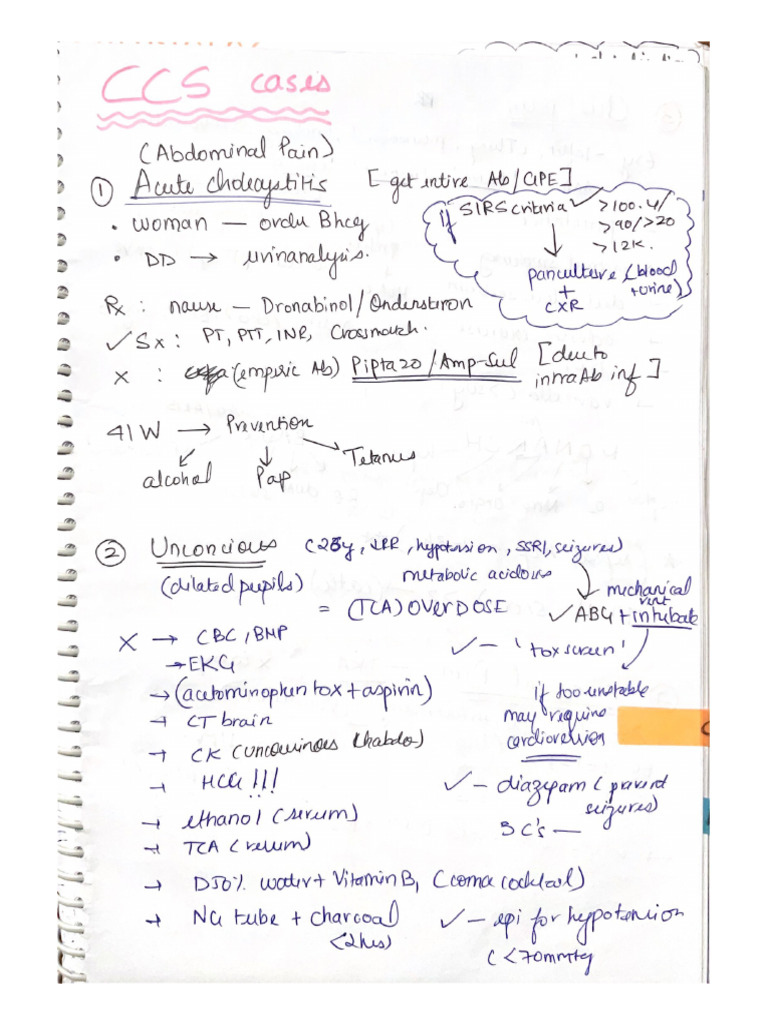 CCS cases
(Abdominal Pain)
① Acute Cholecystitis [get intire Ab/CIPE]
• woman — order Bhcg
• DD → urinanalysis.
if SIRS criteria ✓ >100.4/
>90/>20
>12K.
↓
panculture (blood
+ +urine)
CXR
Rx : nause — Dronabinol/Onderstron
✓ Sx : PT, PTT, INR, Crossmatch.
X : (emperic Ab) Piptazo/Amp-Sul [due to
intraAb inf]
41W → Prevention
alcohol Pap Tetanus
② Unconcious (25y, ↓RR, hypotension, SSRI, seizures)
(dilated pupils) metabolic acidosis
= (TCA) OVERDOSE
mechanical
vent
✓ ABG + intubate
X → CBC, BMP
✓ — 'tox screen'
→ EKG
→ (acetominophen tox + aspirin)
if too unstable
→ CT brain
may require
cardioversion
→ CK (unconcious rhabdo)
→ HCG !!!
✓ — diazepam (prevent
seizures)
→ ethanol (serum)
3 C's —
→ TCA (serum)
→ D50% water + Vitamin B, (coma cocktail)
→ NG tube + charcoal
(<2hrs)
✓ — epi for hypotension
(<70mmHg